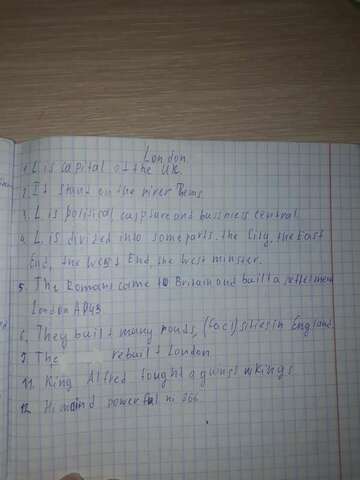 London
1. L. is capital of the UK.
2. It stant on the river Thems
3. L. is political culpture and bussness central.
4. L. is divided into some parts. the City, the East
End, the West End, the West minster.
5. The Romans come to Britain and built a settlement
London AD43
6. They built many roads, sities in England.
7. The rebuilt London
11. King Alfred fought against vikings.
12. powerful in 966.